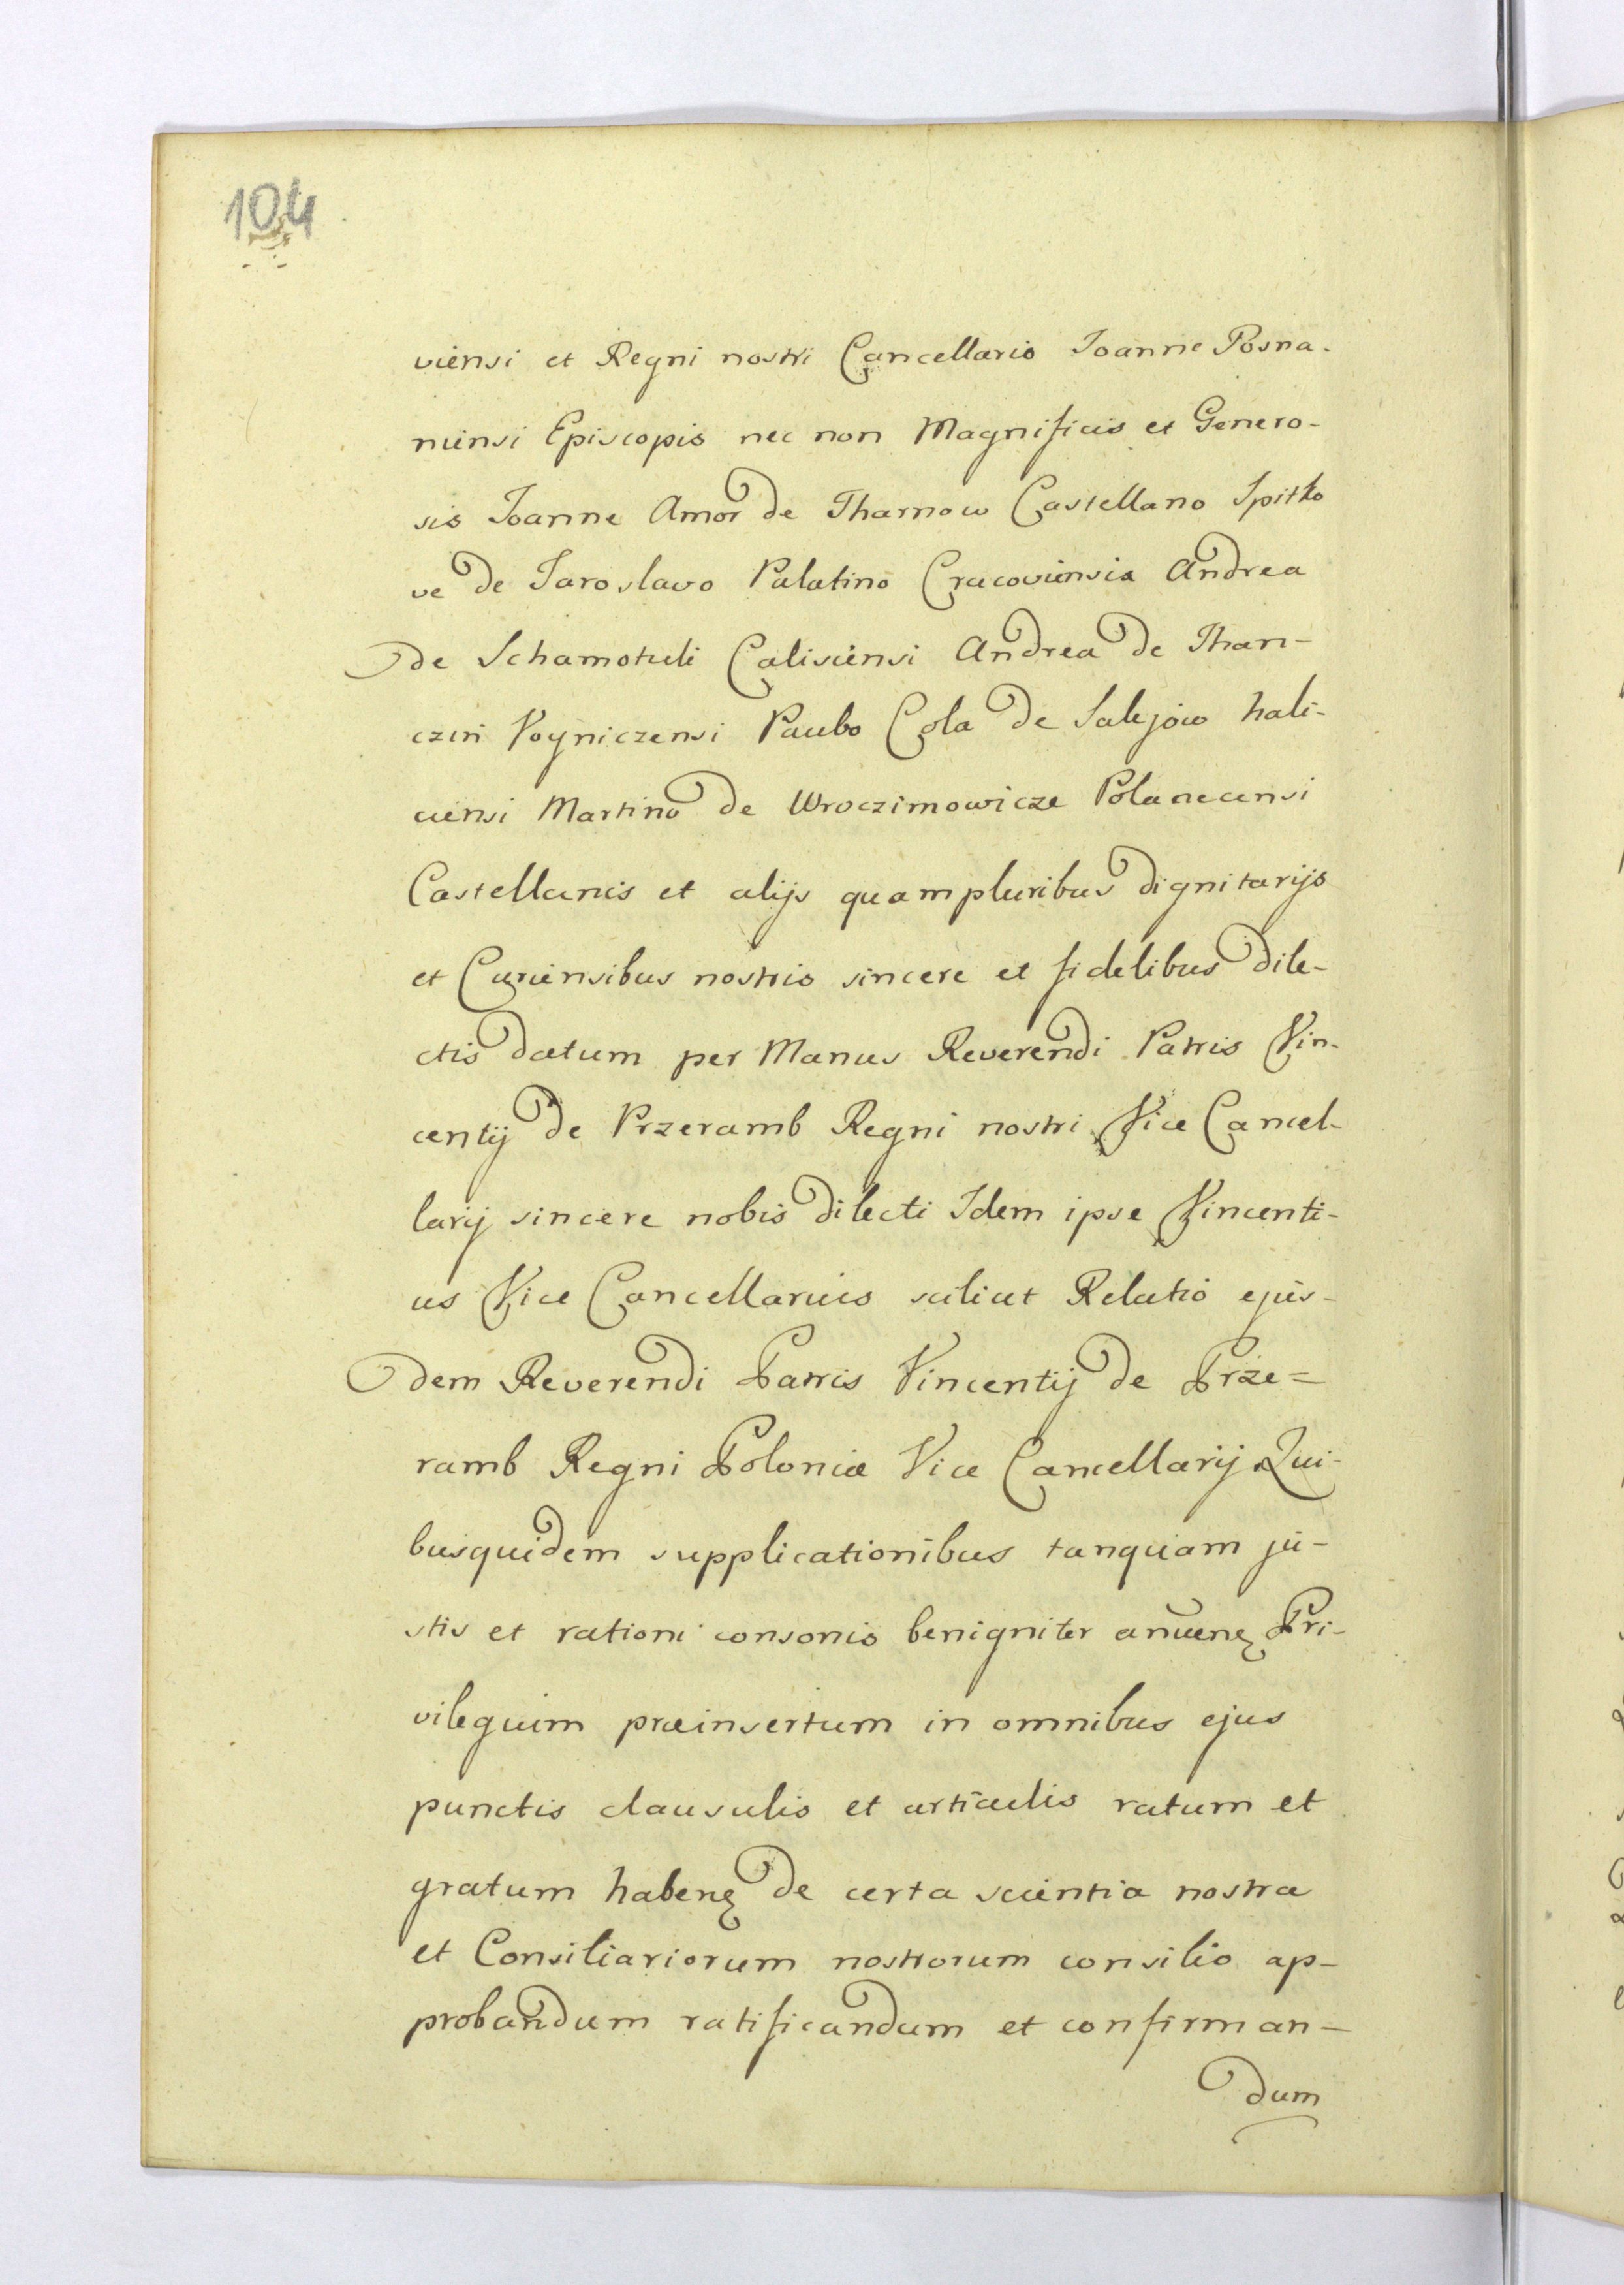 104
viensi et Regni nostri Cancellario Joanne Posna-
niensi Episcopis nec non Magnificis et Genero-
sis Joanne Amor de Tharnow Castellano Spitko
ve de Jaroslavo Palatino Cracoviensia Andrea
de Schamotuli Calisiensi Andrea de Than-
czin Voyniczensi Paulo Cola de Salejów hali-
ciensi Martino de Wroczimowicze Polanecensi
Castellanis et alijs quampluribus dignitarijs
et Curiensibus nostris sincere et fidelibus dile-
ctis datum per Manus Reverendi Patris Vin-
centij de Przeramb Regni nostri Vice Cancel-
larij sincere nobis dilecti Idem ipse Vincenti-
us Vice Cancellarius scilicet Relatio ejus-
dem Reverendi Patris Vincentij de Prze=
ramb Regni Poloniæ Vice Cancellarij Qui-
busquidem supplicationibus tanquam ju-
stis et rationi consonis benigniter anuenȩ Pri-
vilegium præinsertum in omnibus ejus
punctis clausulis et articulis ratum et
gratum habenȩ de certa scientia nostra
et Consiliariorum nostrorum consilio ap-
probandum ratificandum et confirman-
dum